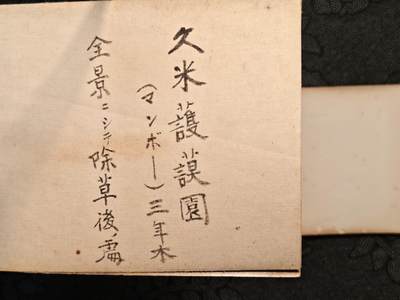 久米護謨園
(マンボー)三年木
全景ニシテ除草後ノ